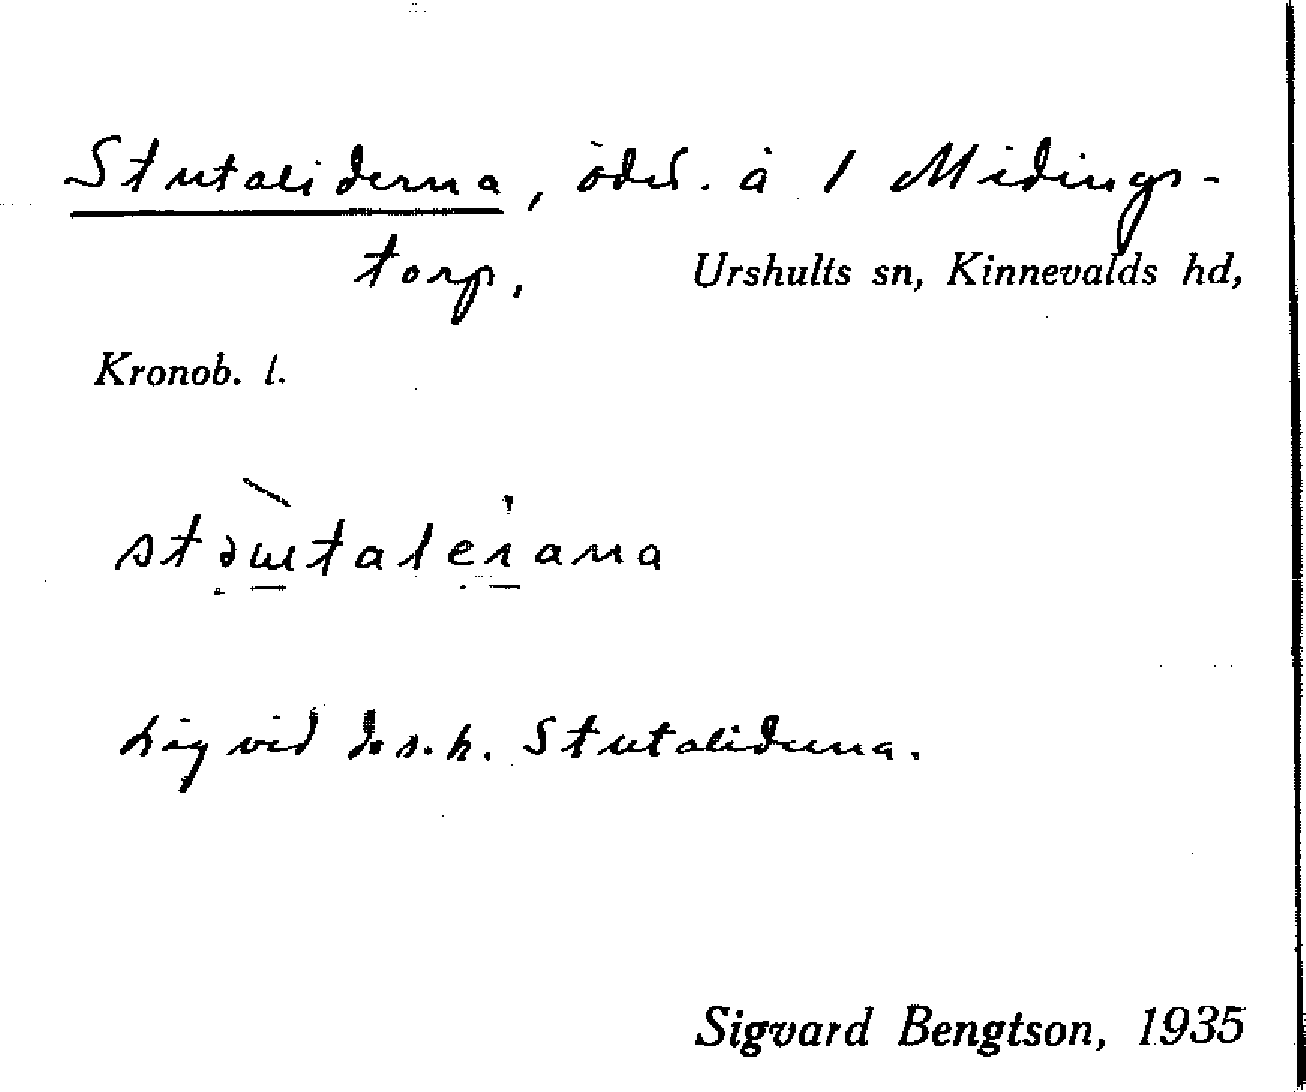 Stutaliderna, ödel. å 1 Midings-
torp. Urshults sn, Kinnevalds hd,
Kronob. l.
Låg vid de s.k. Stutaliderna.
Sigvard Bengtson, 1935